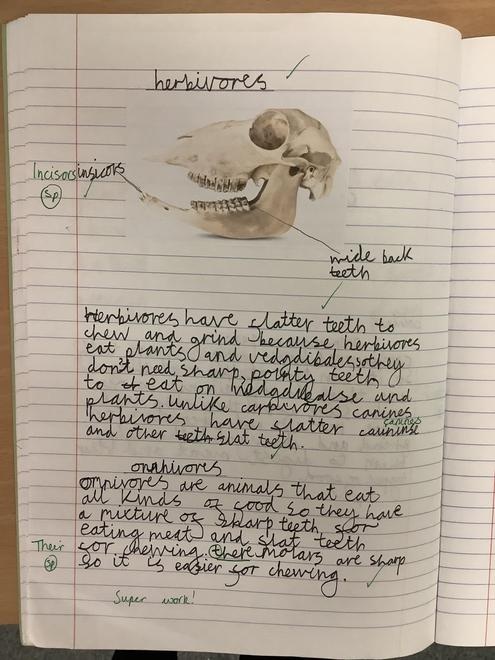 herbivores
Incisors insicors
Sp
wide back
teeth
herbivores have flatter teeth to
chew and grind because herbivores
eat plants and vedgdibales, sothey
don't need sharp pointy teeth
to eat on
plants. unlike carbivores canines
canines
herbivores have flatter cauninse
and other teeth flat teeth.
omnhivores
omnivores are animals that eat
all kinds of food so they have
a mixture of sharp teeth for
eating meat and flat teeth
Their
for chewing. there molars are sharp
Sp
so it is easier for chewing.
Super work!